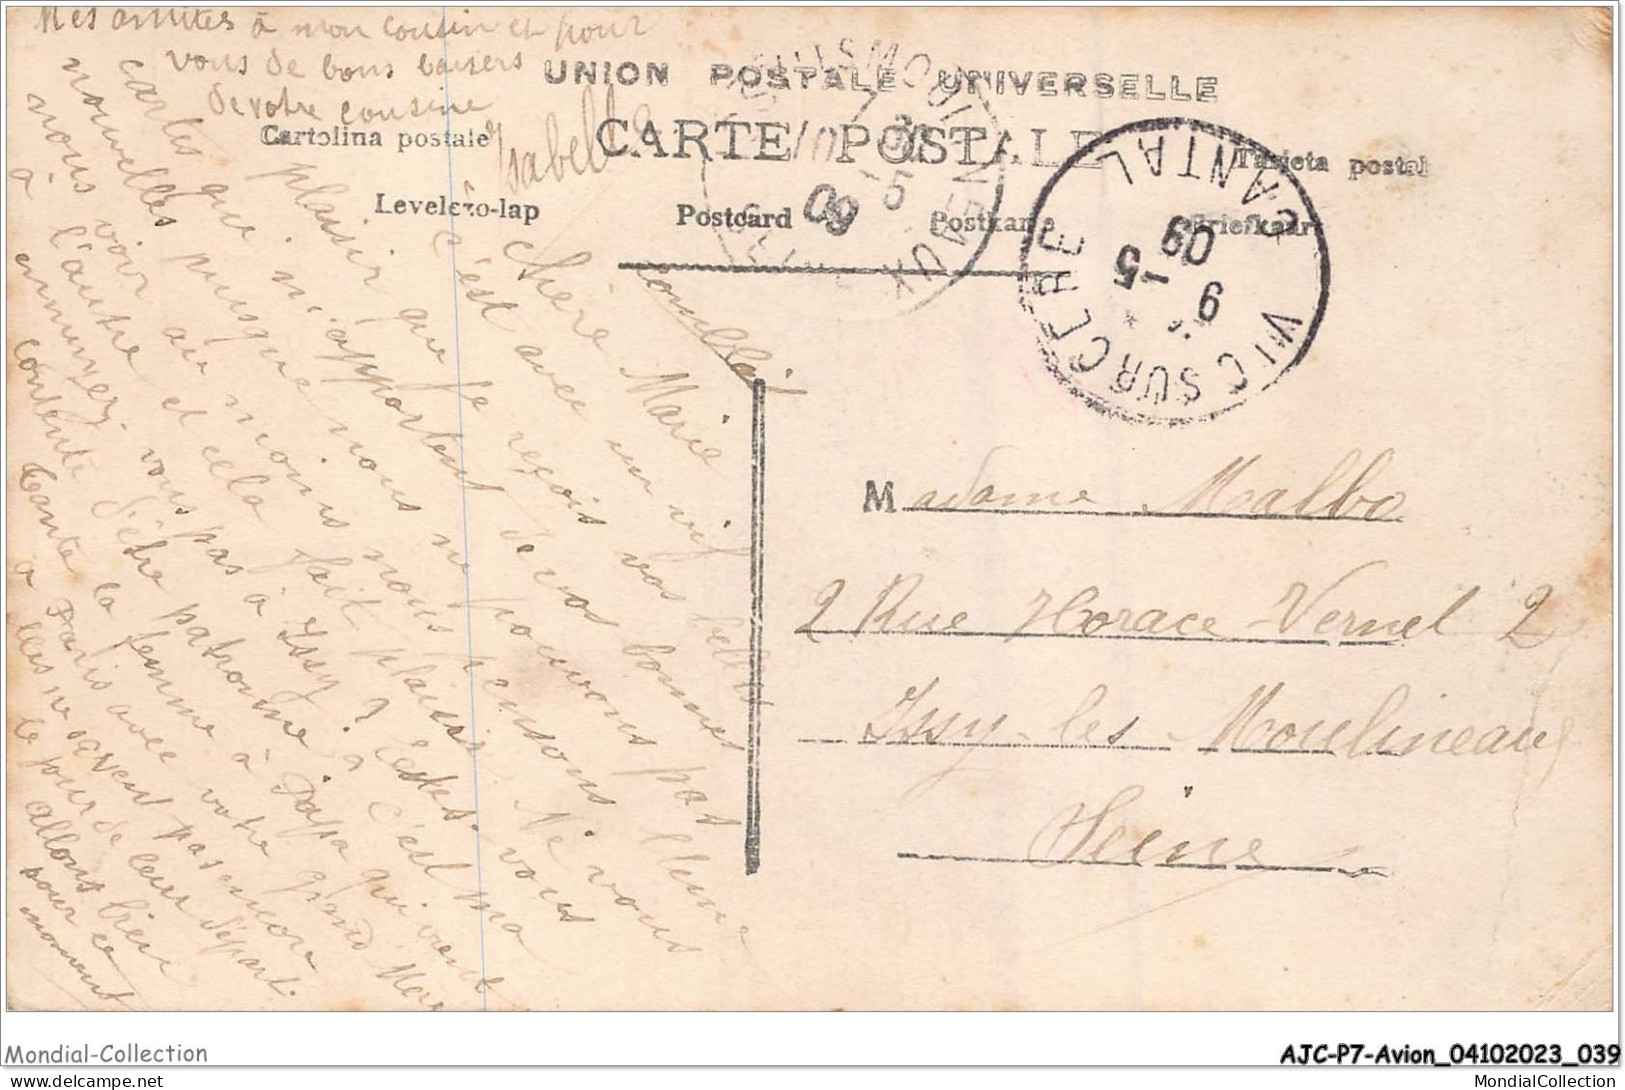 Mes amitiés à mon cousin et pour
vous de bons baisers
de votre cousine
Isabelle
UNION POSTALE UNIVERSELLE
CARTE POSTALE
Cartolina postale
Tarjeta postal
Levelező-lap
Postcard
Postkarte
Briefkaart
ISSY LES MOULINEAUX
SEINE
10
7 30
-5
09
VIC SUR CERE
CANTAL
9
-5
09
Chère Marie
c'est avec un vif
plaisir que je reçois vos belles
cartes qui m'apportent de vos bonnes
nouvelles puisque nous ne pouvons pas l'une
nous voir au moins nous pensons
à l'autre et cela fait plaisir. Ne vous
ennuyez vous pas à Issy ? Êtes vous
contente d'être patronne
c'est ma
Tante la femme à Papa qui vient
à Paris avec votre grand Mère
elles ne savent pas encore
le jour de leur départ.
allons bien
pour ce
moment
Madame Malbo
2 Rue Horace-Vernet 2
Issy-les Moulineaux
Seine
Mondial-Collection
AJC-P7-Avion_04102023_039
www.delcampe.net
MondialCollection